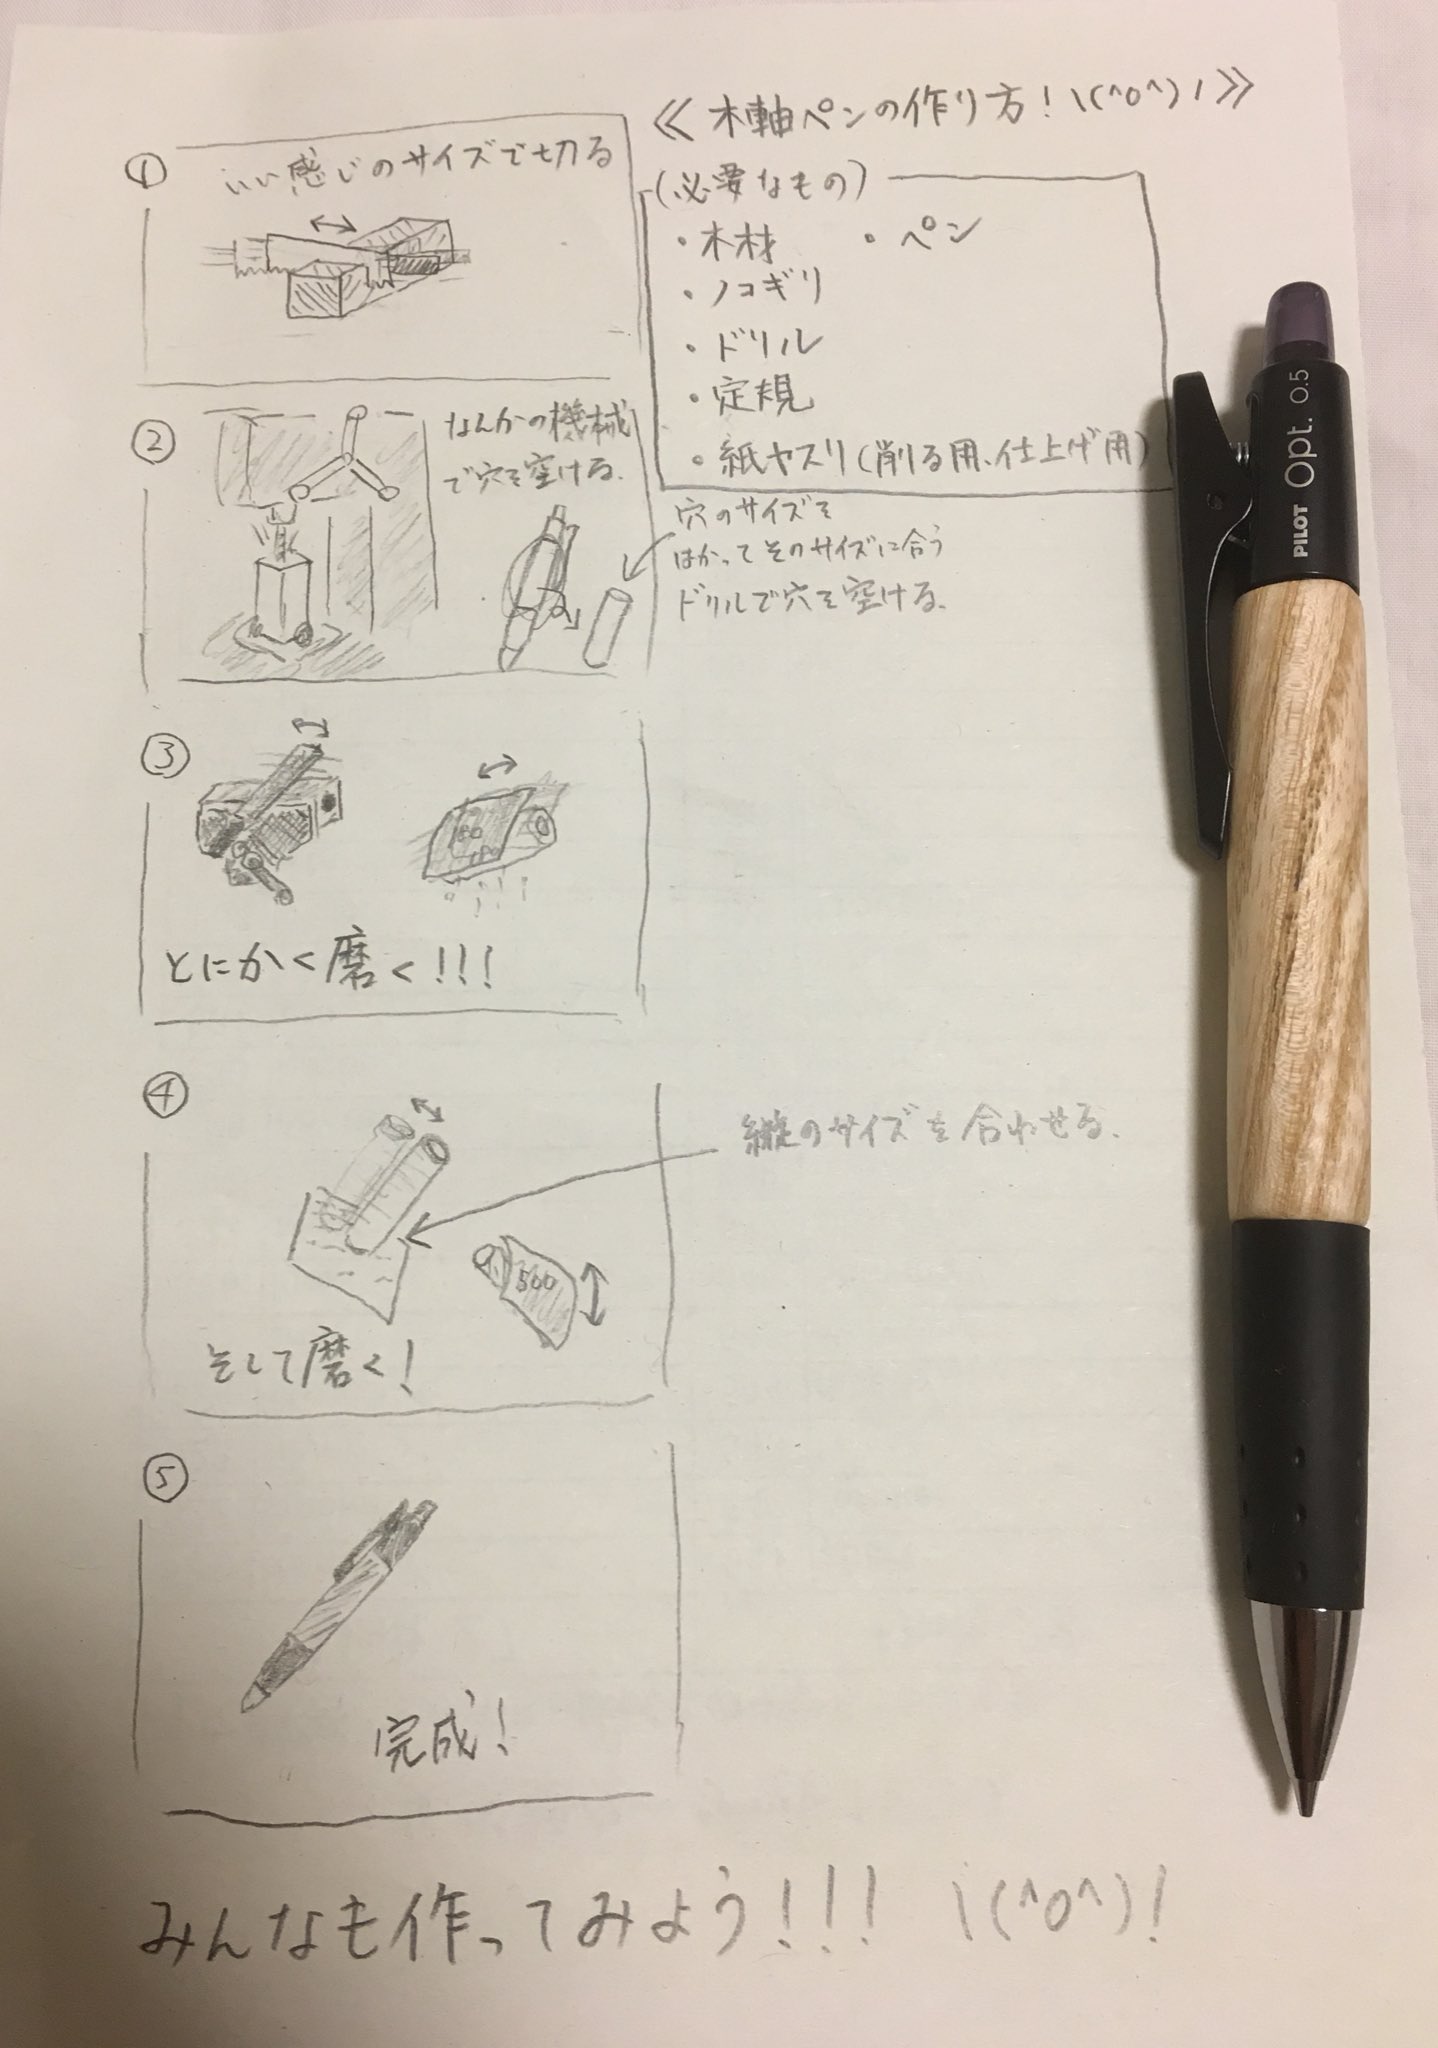 ≪木軸ペンの作り方！\(^o^)/≫
(必要なもの)
・木材 ・ペン
・ノコギリ
・ドリル
・定規
・紙ヤスリ(削る用、仕上げ用)
①
いい感じのサイズで切る
②
なんかの機械
で穴を空ける。
穴のサイズを
はかってそのサイズに合う
ドリルで穴を空ける。
③
とにかく磨く!!!
④
縦のサイズを合わせる。
500
そして磨く!
⑤
完成!
みんなも作ってみよう!!! \(^o^)!
PILOT Opt. 0.5